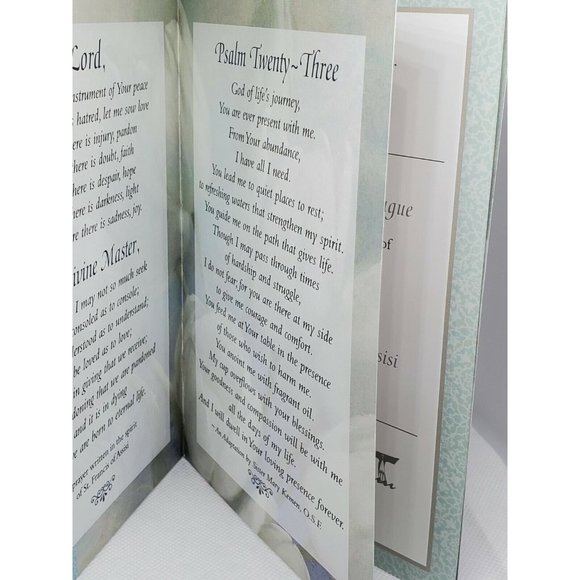 Lord,
instrument of Your peace
hatred, let me sow love
ere is injury, pardon
ere is doubt, faith
ere is despair, hope
ere is darkness, light
ere there is sadness, joy.
ivine Master,
I may not so much seek
onsoled as to console;
derstood as to understand;
be loved as to love;
in giving that we receive;
doning that we are pardoned
and it is in dying
e are born to eternal life.
prayer written in the spirit
of St. Francis of Assisi
Psalm Twenty~Three
God of life's journey,
You are ever present with me.
From Your abundance,
I have all I need.
You lead me to quiet places to rest;
to refreshing waters that strengthen my spirit.
You guide me on the path that gives life.
Though I may pass through times
of hardship and struggle,
I do not fear for you are there at my side
to give me courage and comfort.
You feed me at Your table in the presence
of those who wish to harm me.
You anoint me with fragrant oil.
My cup overflows with your blessings.
Your goodness and compassion will be with me
all the days of my life.
And I will dwell in Your loving presence forever.
~An Adaptation by Sister Mary Kernen, O.S.F.
ague
of
sisi